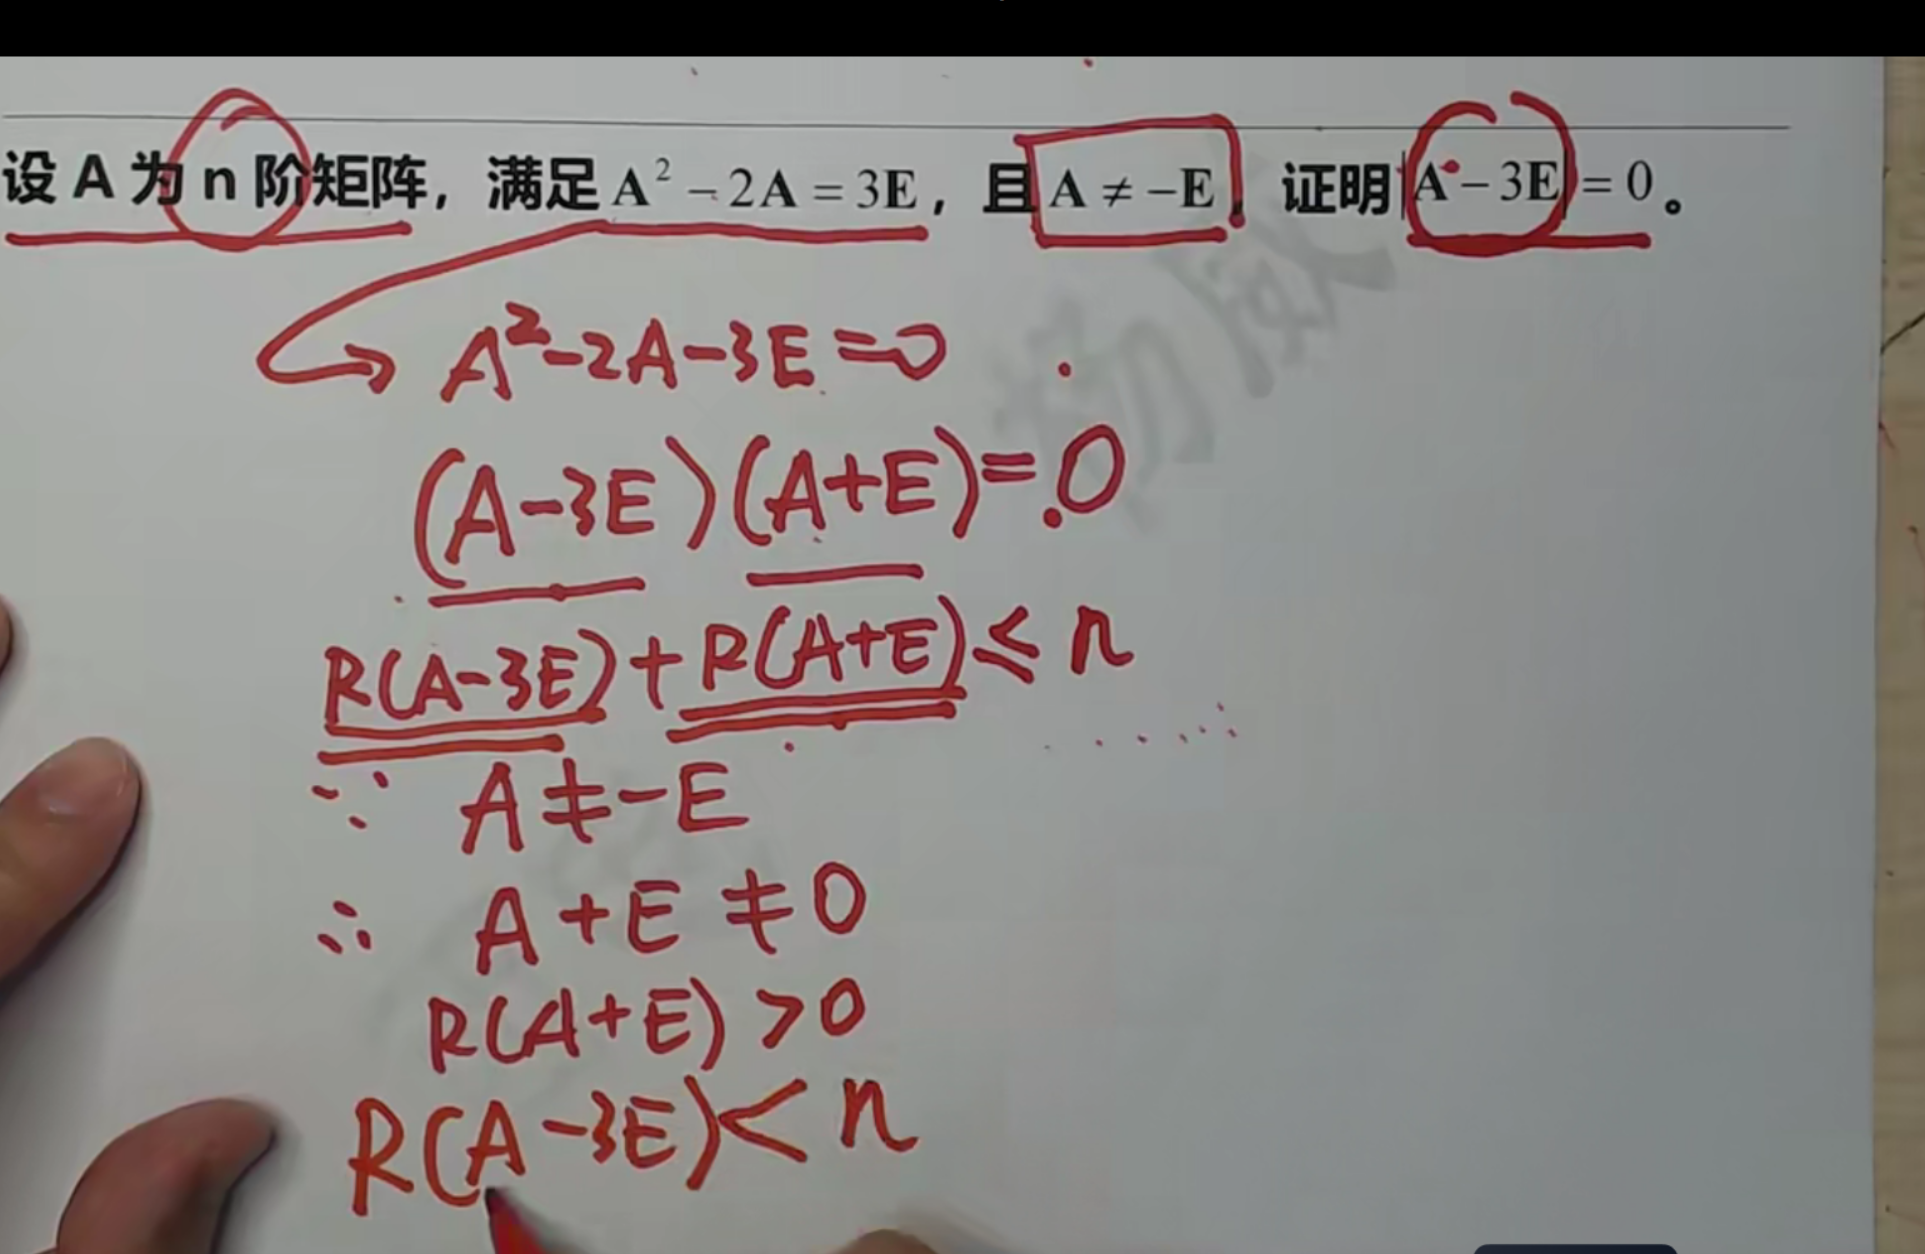 设 A 为 n 阶矩阵，满足 A² − 2A = 3E，且 A ≠ −E，证明|A − 3E| = 0。
A²-2A-3E=0
(A-3E)(A+E)=0
R(A-3E)+R(A+E)≤n
∵ A≠-E
∴ A+E≠0
R(A+E)>0
R(A-3E)<n